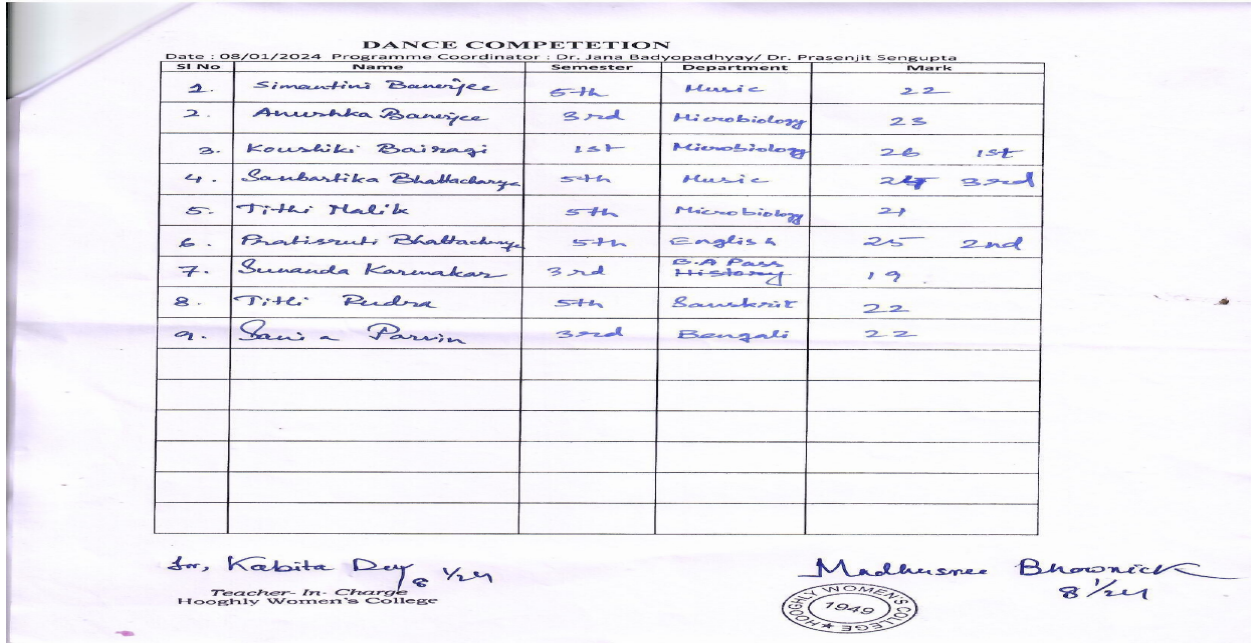 DANCE COMPETETION
Date : 08/01/2024 Programme Coordinator : Dr. Jana Badyopadhyay/ Dr. Prasenjit Sengupta
Sl No Name Semester Department Mark
1. Simantini Banerjee 5th Music 22
2. Anushka Banerjee 3rd Microbiology 23
3. Koushiki Bairagi 1st Microbiology 26 1st
4. Sanbartika Bhattacharya 5th Music 24 3rd
5. Tithi Malik 5th Microbiology 21
6. Pratisruti Bhattacharya 5th English 25 2nd
B.A Pass
7. Sunanda Karmakar 3rd History 19
8. Titli Rudra 5th Sanskrit 22
9. Sania Parvin 3rd Bengali 22
for, Kabita Dey 8/1/24
Madhusree Bhowmick
8/1/24
Teacher- In- Charge
Hooghly Women's College
HOOGHLY WOMEN'S COLLEGE
1949